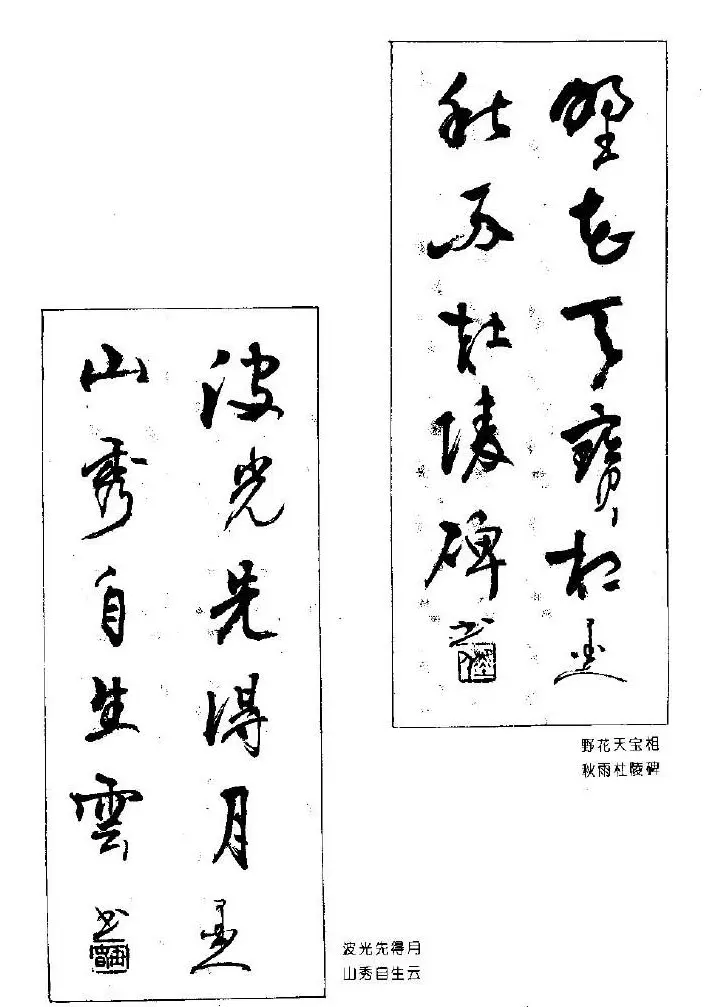 野花天寶相
秋雨杜陵碑书
野花天宝相
秋雨杜陵碑
波光先得月
山秀自生雲书
波光先得月
山秀自生云